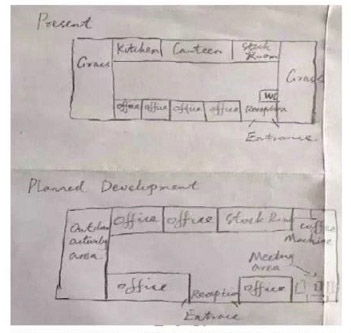 Present
Kitchen Canteen Stock Room
Grass Grass
WC
office office office office Reception
Entrance
Planned Development
Office Office Stock Room Coffee Machine
Outdoor activity area
Meeting area
Office Reception Office
Entrace